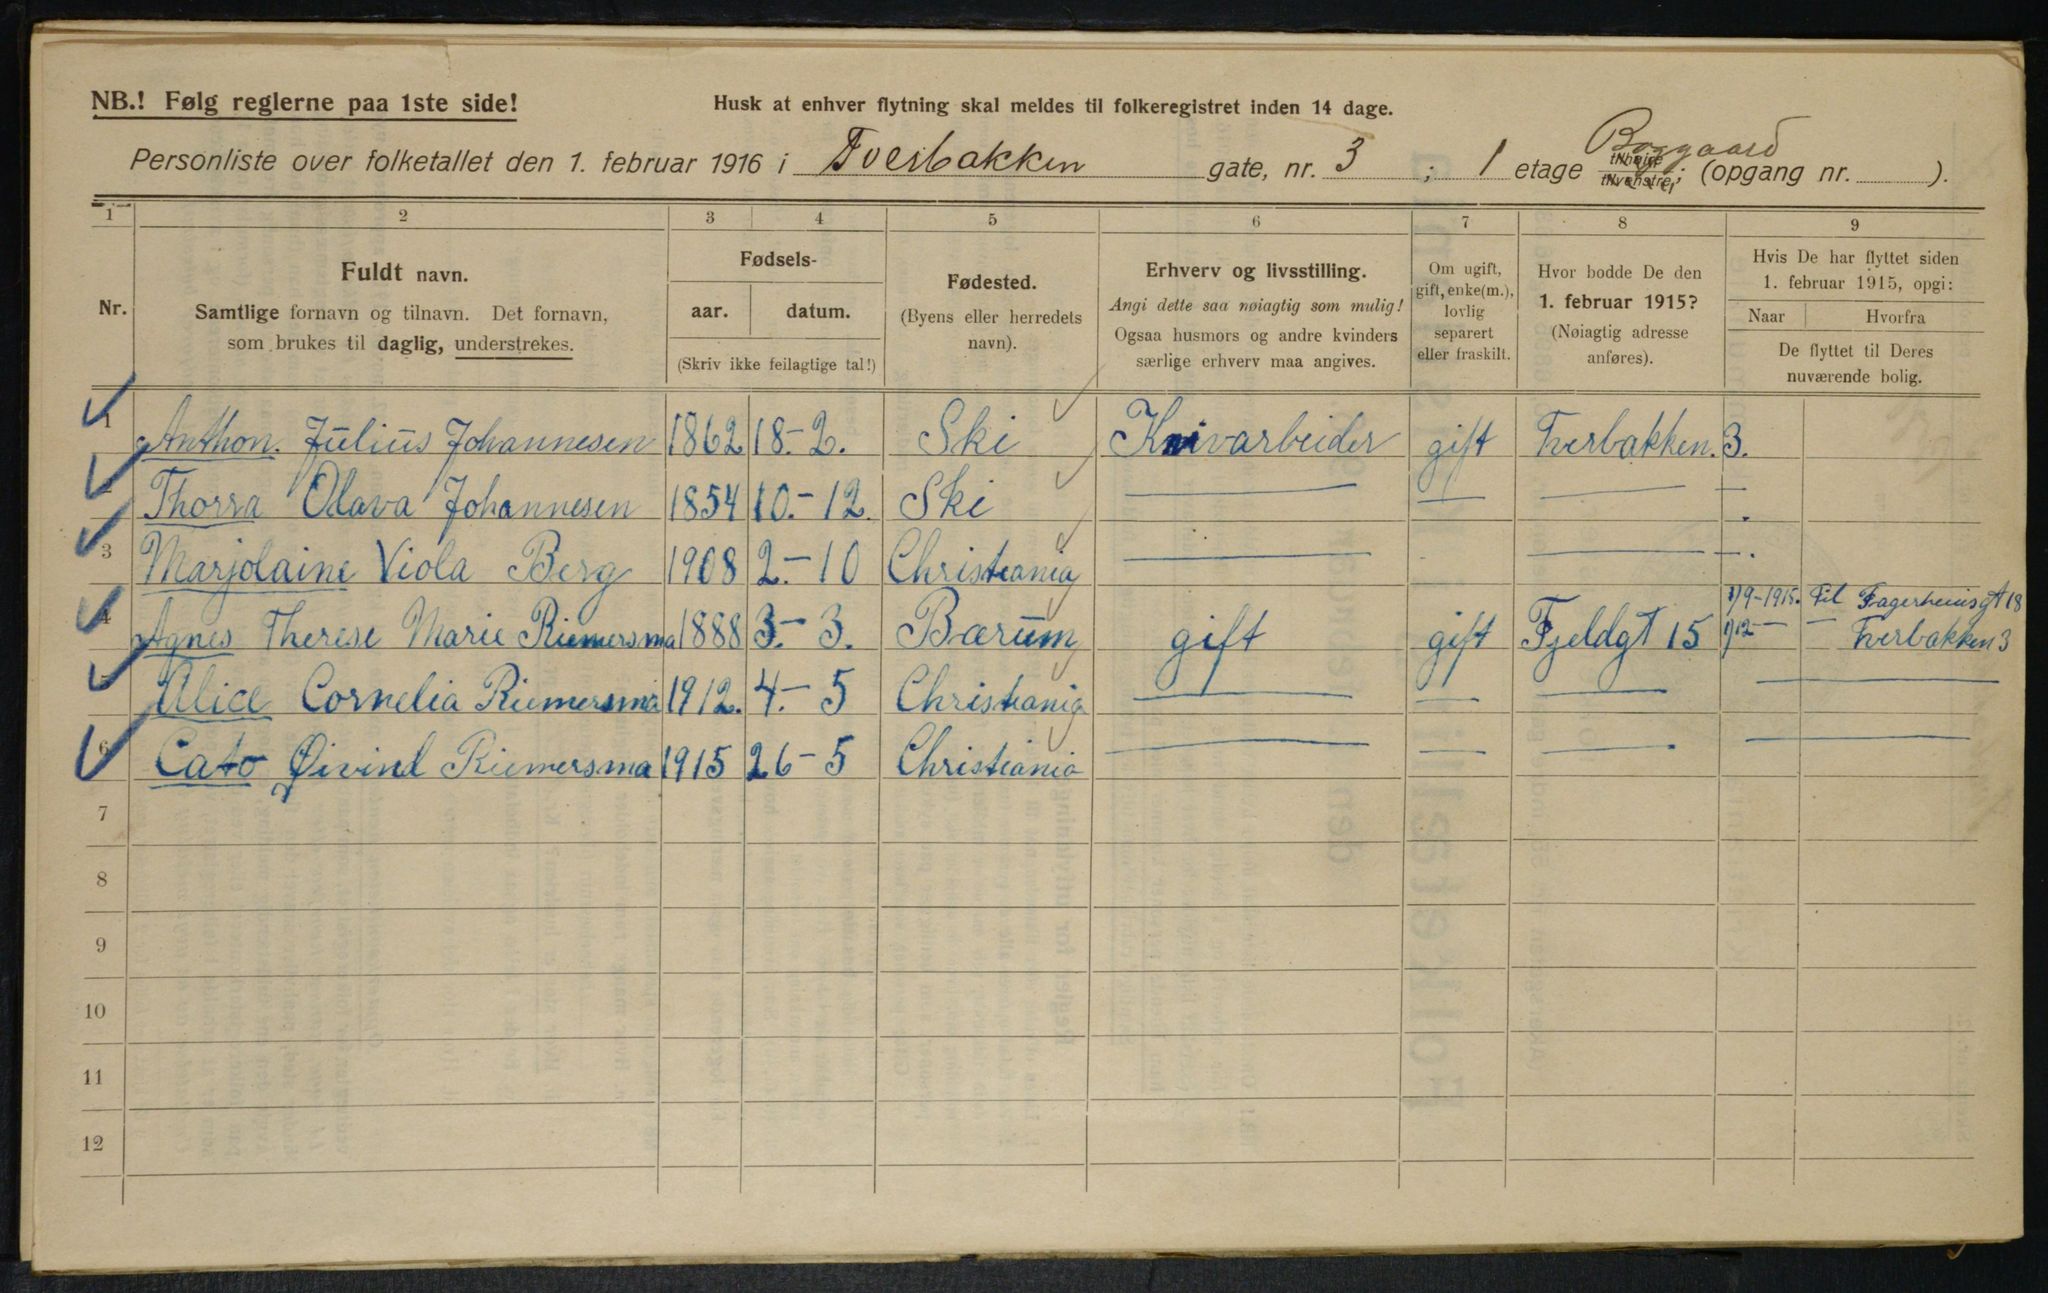 NB.! Følg reglerne paa 1ste side!
Husk at enhver flytning skal meldes til folkeregistret inden 14 dage.
Personliste over folketallet den 1. februar 1916 i Tverbakken gate, nr. 3 ; 1 etage tilhøire tilvenstre; Boggaard (opgang nr. ).
1 2 3 4 5 6 7 8 9
Nr.
Fuldt navn.
Samtlige fornavn og tilnavn. Det fornavn,
som brukes til daglig, understrekes.
Fødsels-
aar. datum.
(Skriv ikke feilagtige tal!)
Fødested.
(Byens eller herredets
navn).
Erhverv og livsstilling.
Angi dette saa nøiagtig som mulig!
Ogsaa husmors og andre kvinders
særlige erhverv maa angives.
Om ugift,
gift, enke(m.),
lovlig
separert
eller fraskilt.
Hvor bodde De den
1. februar 1915?
(Nøiagtig adresse
anføres).
Hvis De har flyttet siden
1. februar 1915, opgi:
Naar Hvorfra
De flyttet til Deres
nuværende bolig.
1 Anthon. Julius Johannesen 1862 18.-2. Ski Knivarbeider gift Tverbakken. 3.
Thorra Olava Johannesen 1854 10.-12. Ski — — — —
3 Marjolaine Viola Berg 1908 2.-10 Christiania — — —
1/9-1915. Til Fagerheimsgt 18
4 Agnes Therese Marie Riemersma 1888 3.-3. Bærum gift gift Fjeldgt 15 1/12 — — Tverbakken 3
5 Alice Cornelia Riemersma 1912. 4.-5 Christiania — — — —
6 Cato Øivind Riemersma 1915 26-5 Christiania — — — —
7
8
9
10
11
12